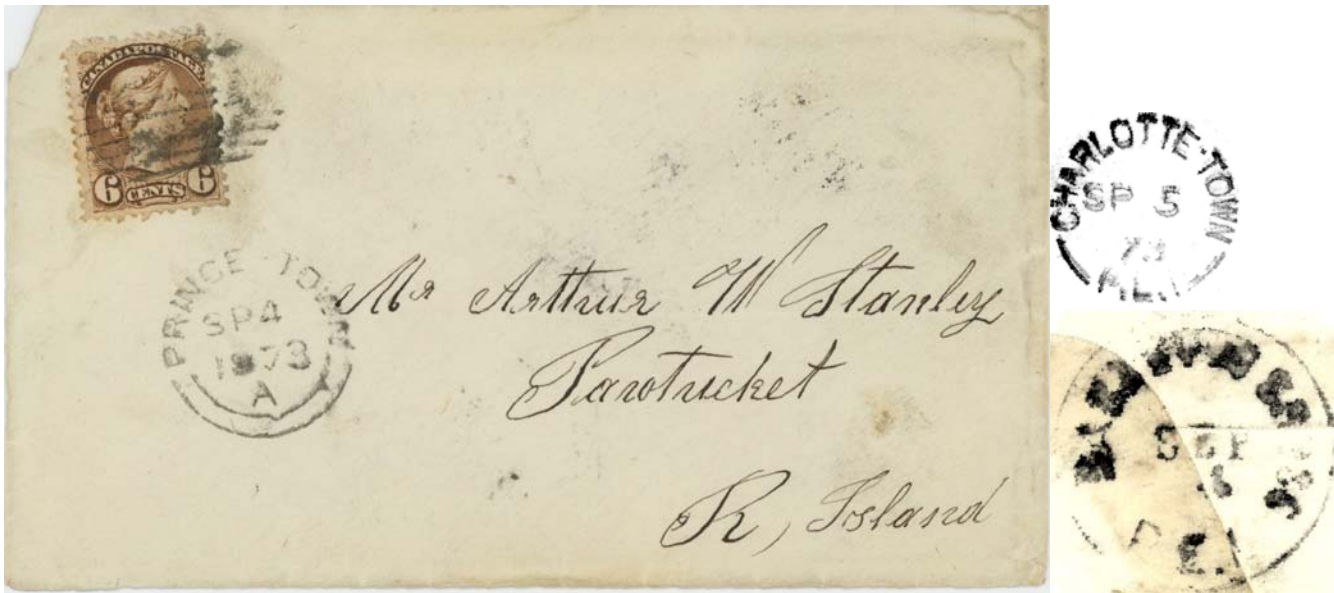 CANADA POSTAGE
6 CENTS 6
PRINCE-TOWN
SP4
1873
A
Mr Arthur W Stanley
Pawtucket
R, Island
CHARLOTTE-TOWN
SP 5
73
P.E.I
SEP
P.E.I.